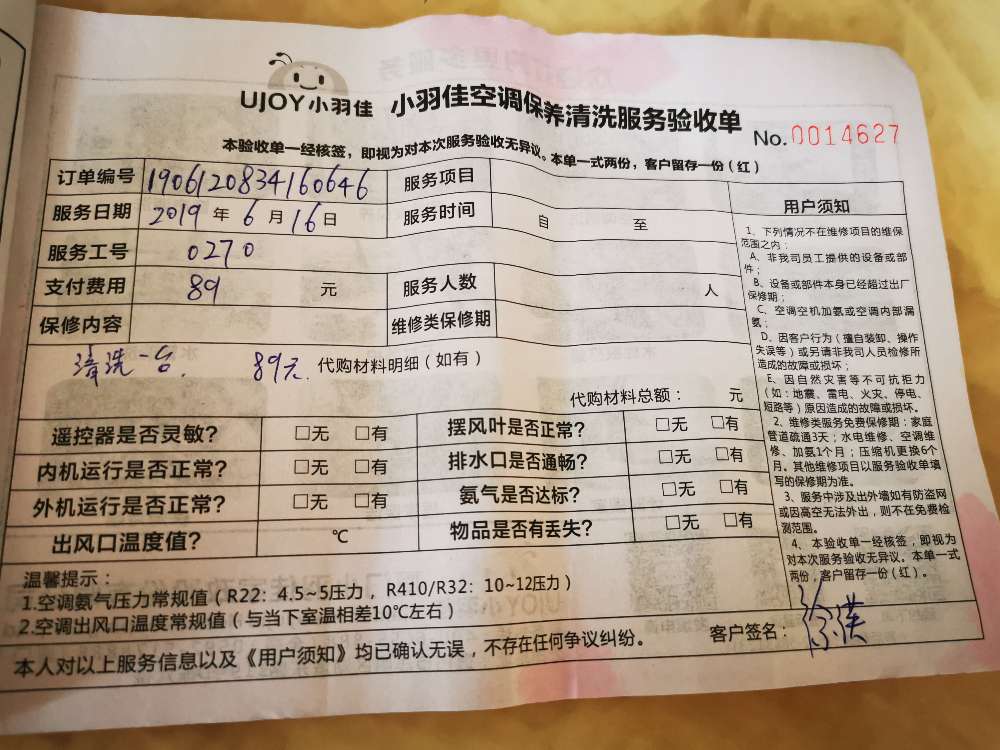 UJOY小羽佳 小羽佳空调保养清洗服务验收单
No.0014627
本验收单一经核签，即视为对本次服务验收无异议。本单一式两份，客户留存一份（红）
订单编号 1906120834160646 服务项目
服务日期 2019 年 6 月 16 日 服务时间 自 至
服务工号 0270
支付费用 89 元 服务人数 人
保修内容 维修类保修期
清洗一台. 89元. 代购材料明细（如有）
代购材料总额： 元
遥控器是否灵敏? □无 □有 摆风叶是否正常? □无 □有
内机运行是否正常? □无 □有 排水口是否通畅? □无 □有
外机运行是否正常? □无 □有 氨气是否达标? □无 □有
出风口温度值? ℃ 物品是否有丢失? □无 □有
温馨提示：
1.空调氨气压力常规值（R22：4.5~5压力，R410/R32：10~12压力）
2.空调出风口温度常规值（与当下室温相差10℃左右）
本人对以上服务信息以及《用户须知》均已确认无误，不存在任何争议纠纷。 客户签名：
用户须知
1、下列情况不在维修项目的维保
范围之内：
A、非我司员工提供的设备或部
件；
B、设备或部件本身已经超过出厂
保修期；
C、空调空机加氨或空调内部漏
氨；
D、因客户行为（擅自装卸、操作
失误等）或另请非我司人员检修所
造成的故障或损坏；
E、因自然灾害等不可抗拒力
（如：地震、雷电、火灾、停电、
短路等）原因造成的故障或损坏。
2、维修类服务免费保修期：家庭
管道疏通3天；水电维修、空调维
修、加氨1个月；压缩机更换6个
月。其他维修项目以服务验收单填
写的保修期为准。
3、服务中涉及出外墙如有防盗网
或因高空无法外出，则不在免费检
测范围。
4、本验收单一经核签，即视为
对本次服务验收无异议。本单一式
两份，客户留存一份（红）。